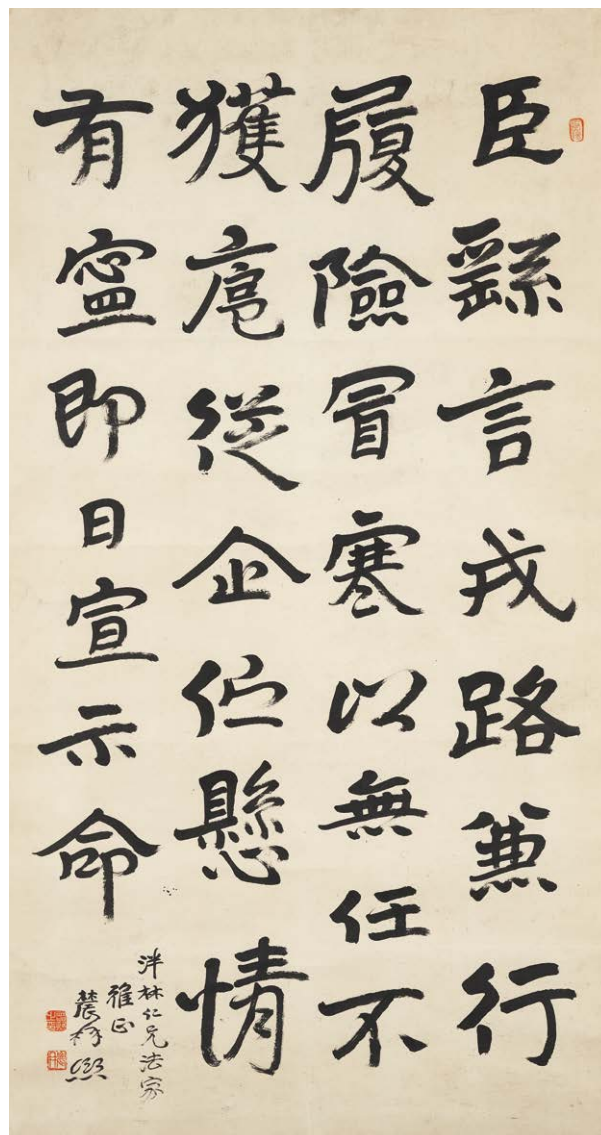 臣繇言戎路兼行
履險冒寒以無任不
獲扈從企佇懸情
有寍即日宣示命
泮林仁兄法家
雅正
農髯熙